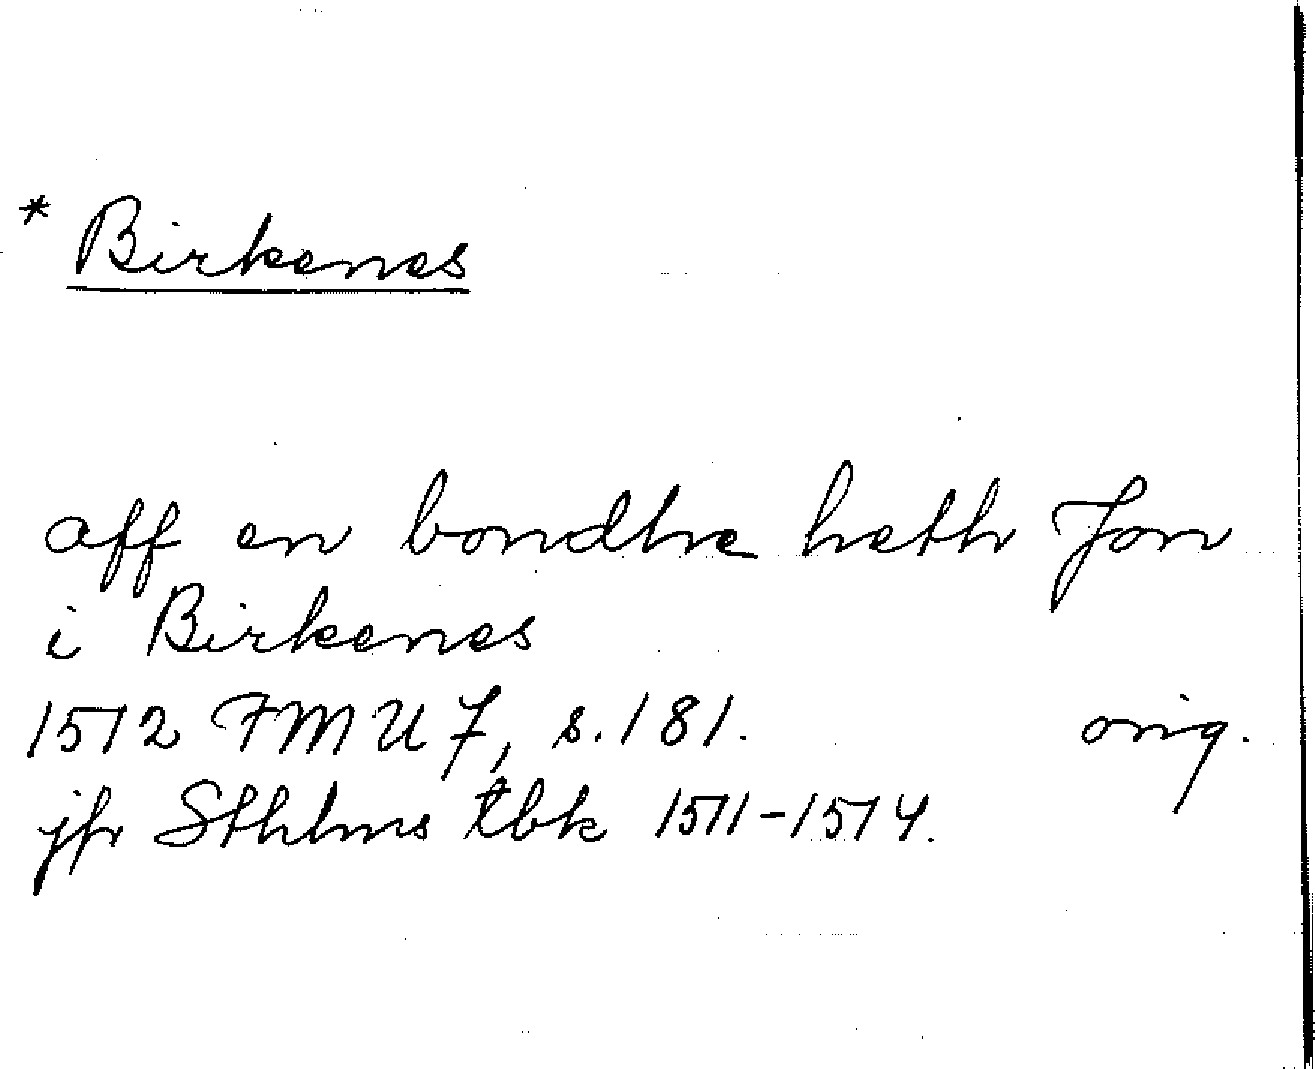 * Birkenes
aff en bondhe heth Jon
i Birkenes
1512 FMU 7, s. 181. orig.
jfr Sthlms tbk 1511-1514.